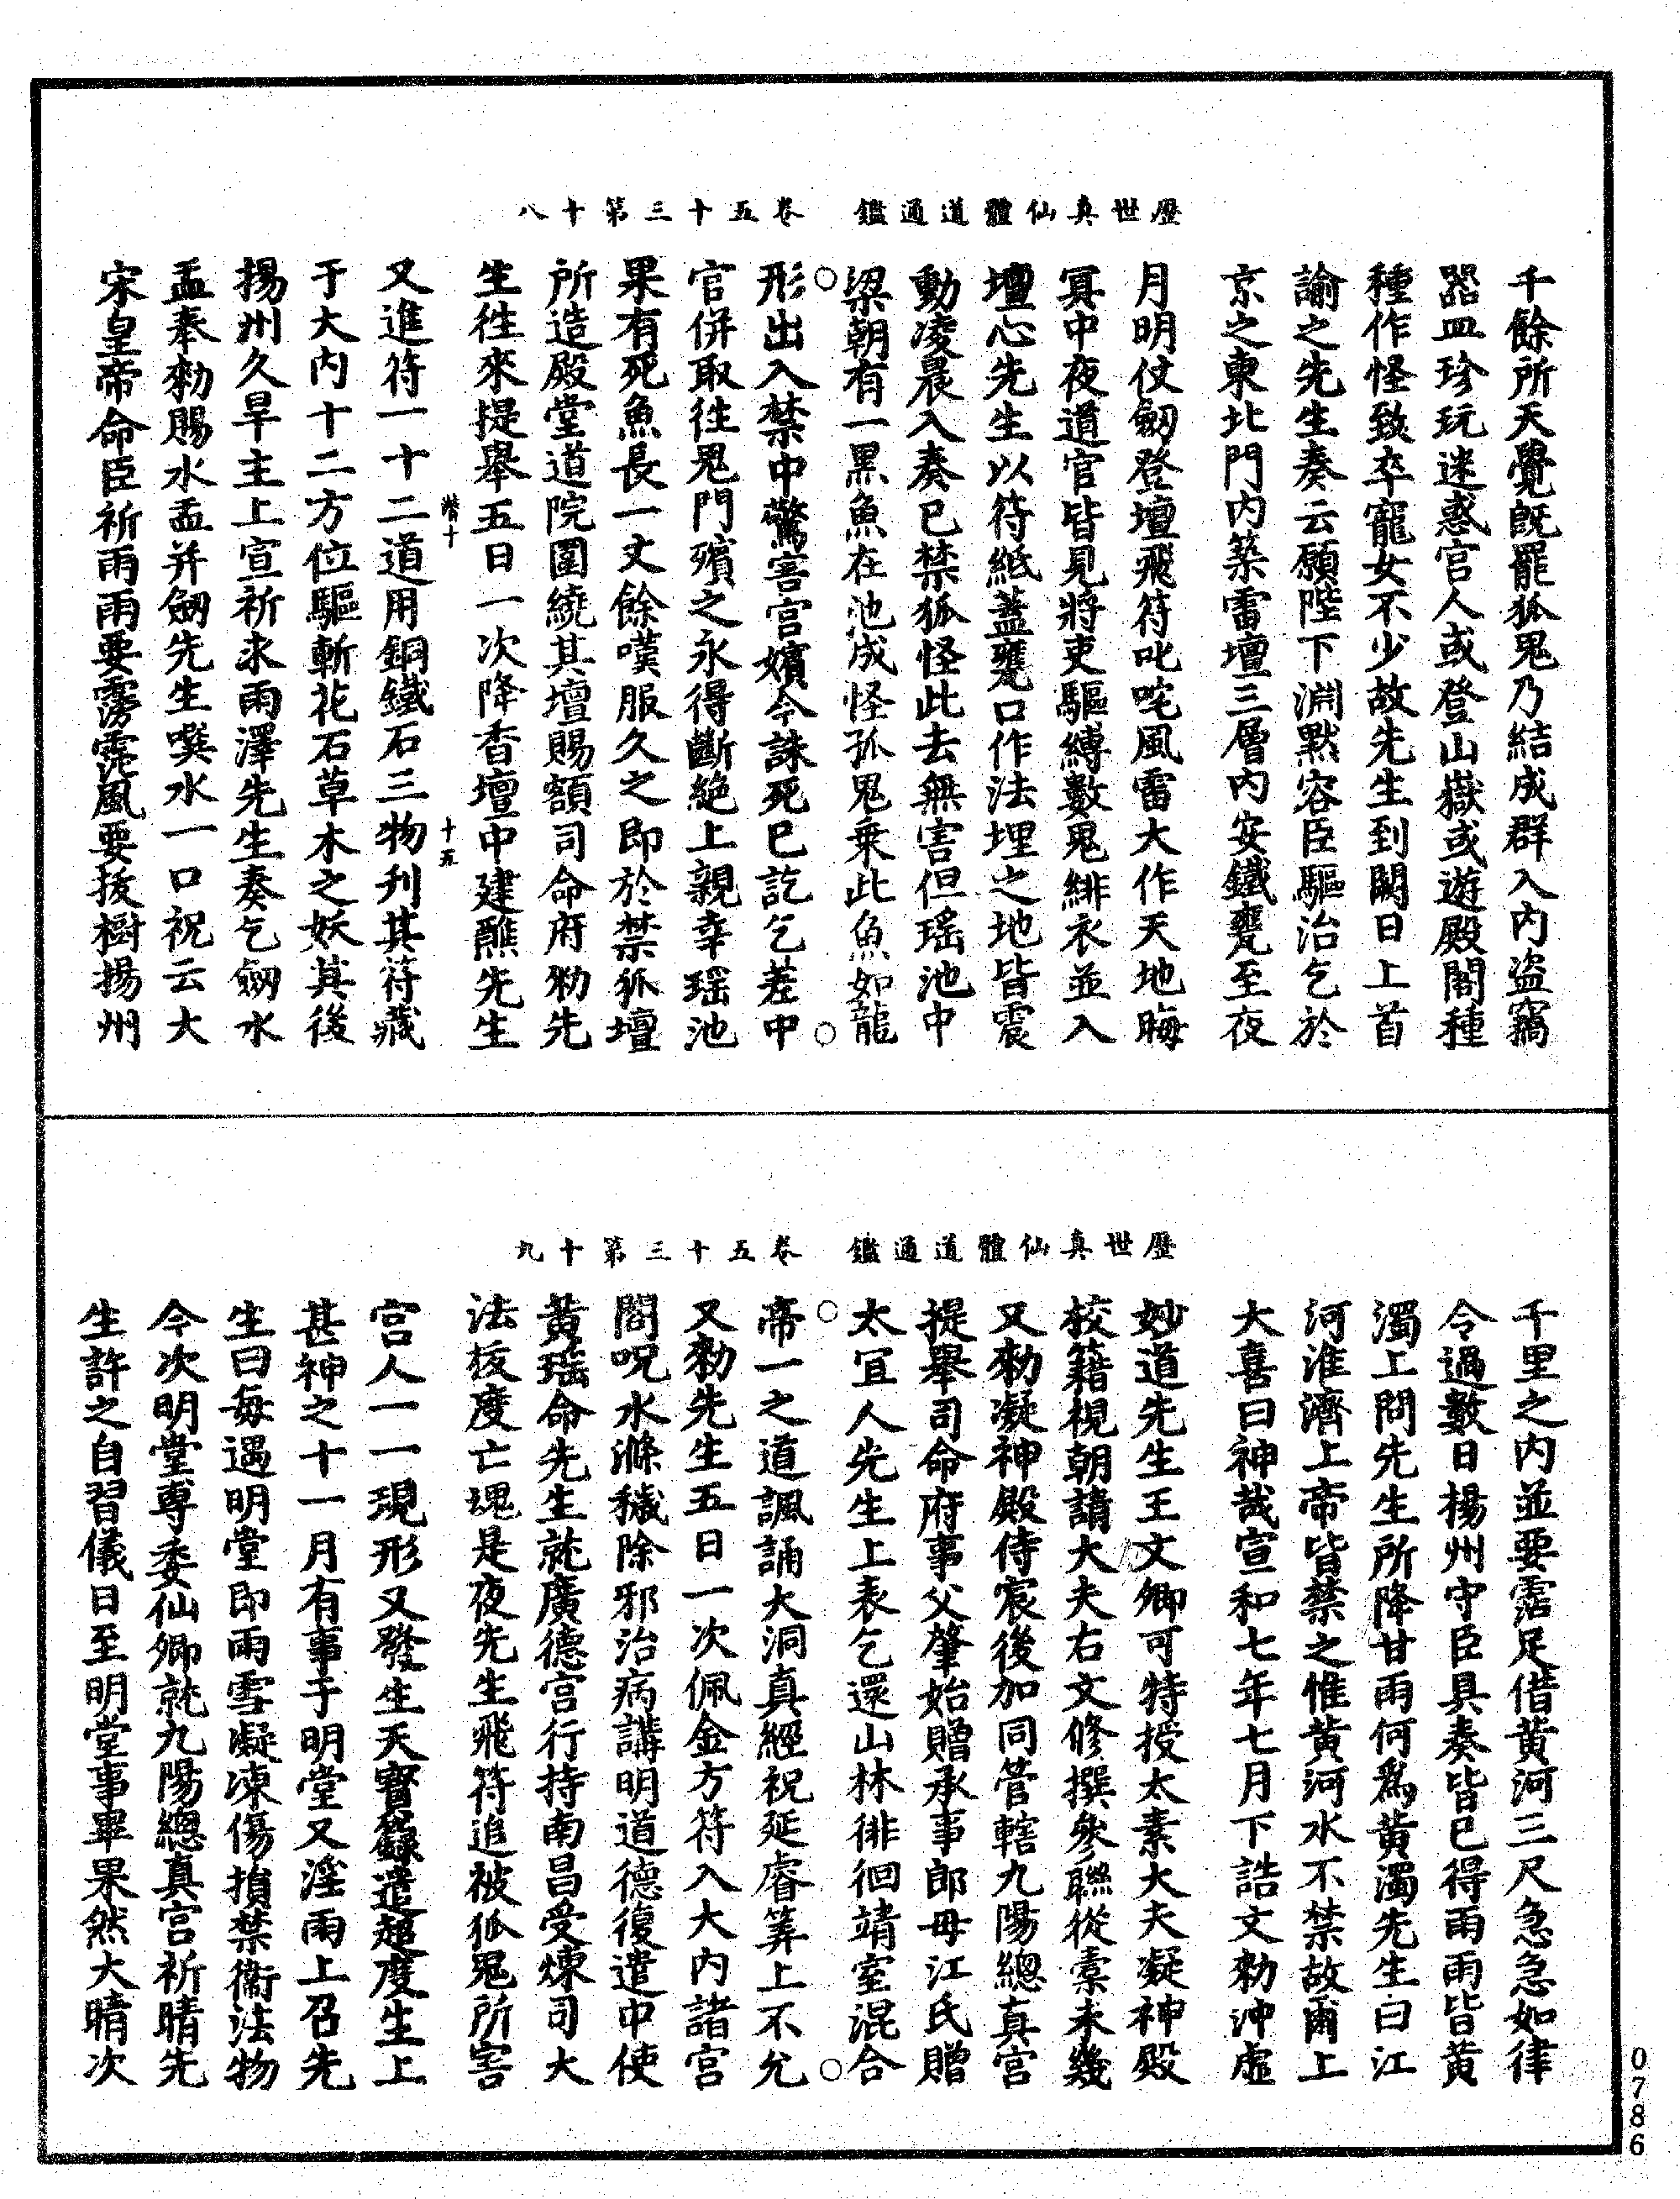 歷世真仙體道通鑑　卷五十三第十八
千餘所天覺旣罷狐鬼乃結成群入内盜竊
器皿珍玩迷惑宫人或登山嶽或遊殿閣種
種作怪致卒寵女不少故先生到闕日上首
諭之先生奏云願陛下淵默容臣驅治乞於
京之東北門内築雷壇三層内安鐵甕至夜
月明仗劒登壇飛符叱咤風雷大作天地晦
冥中夜道官皆見將吏驅縛數鬼緋衣並入
壇心先生以符紙蓋甕口作法埋之地皆震
動凌晨入奏已禁狐怪此去無害但瑶池中
梁朝有一黑魚在池成怪孤鬼乗此魚如龍
形出入禁中驚害宫嬪今誅死已訖乞差中
官併取往鬼門殯之永得斷絶上親幸瑶池
果有死魚長一丈餘嘆服久之即於禁狐壇
所造殿堂道院圍繞其壇賜額司命府勑先
生往來提舉五日一次降香壇中建醮先生
又進符一十二道用銅鐵石三物刋其符藏
于大内十二方位驅斬花石草木之妖其後
揚州久旱主上宣祈求雨澤先生奏乞劒水
盂奉勑賜水盂并劒先生噀水一口祝云大
宋皇帝命臣祈雨雨要霶霈風要拔樹揚州
十五
歷世真仙體道通鑑　卷五十三第十九
千里之内並要霑足借黄河三尺急急如律
令過數日揚州守臣具奏皆已得雨雨皆黄
濁上問先生所降甘雨何爲黄濁先生曰江
河淮濟上帝皆禁之惟黄河水不禁故爾上
大喜曰神哉宣和七年七月下誥文勑沖虛
妙道先生王文卿可特授太素大夫凝神殿
校籍視朝請大夫右文修撰參聯從橐未幾
又勑凝神殿侍宸後加同管轄九陽總真宫
提舉司命府事父肇始贈承事郎母江氏贈
太宜人先生上表乞還山林徘徊靖室混合
帝一之道諷誦大洞真經祝延睿筭上不允
又勑先生五日一次佩金方符入大内諸宫
閤呪水滌穢除邪治病講明道德復遣中使
黄瑶命先生就廣德宫行持南昌受煉司大
法拔度亡魂是夜先生飛符追被狐鬼所害
宫人一一現形又發生天寶籙遣超度生上
甚神之十一月有事于明堂又淫雨上召先
生曰每遇明堂即雨雪凝凍傷損禁衞法物
今次明堂專委仙卿就九陽總真宫祈晴先
生許之自習儀日至明堂事畢果然大晴次
0786